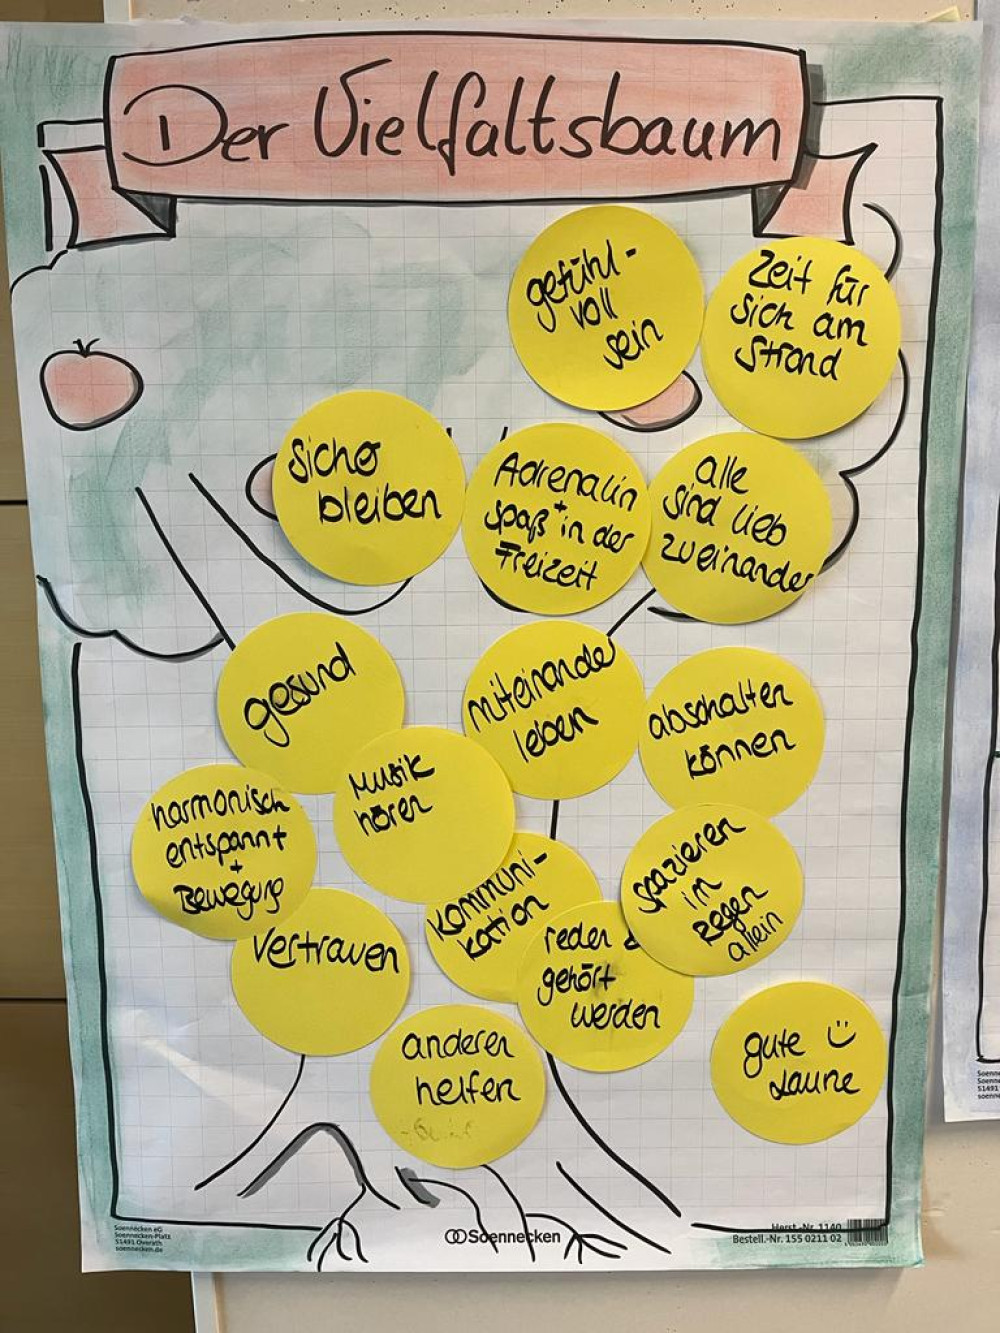 Der Vielfaltsbaum
gefühl-
voll
sein
Zeit für
sich am
Strand
Sicher
bleiben
Adrenalin
+
Spaß in der
Freizeit
alle
sind lieb
zueinander
gesund
miteinander
leben
abschalten
können
Musik
hören
harmonisch
entspannt
+
Bewegung
spazieren
im
Regen
allein
Kommuni-
kation
Vertrauen
reden &
gehört
werden
anderen
helfen
gute
Laune
Soennecken eG
Soennecken-Platz
51491 Overath
soennecken.de
Soennecken
Herst.-Nr. 1140
Bestell.-Nr. 155 0211 02
Soenne
Soenne
51491
soenne